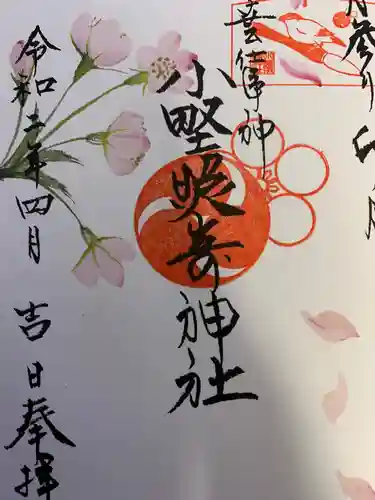 月参り 卯月
芸能神
小野照崎神社
令和二年四月 吉日奉拝